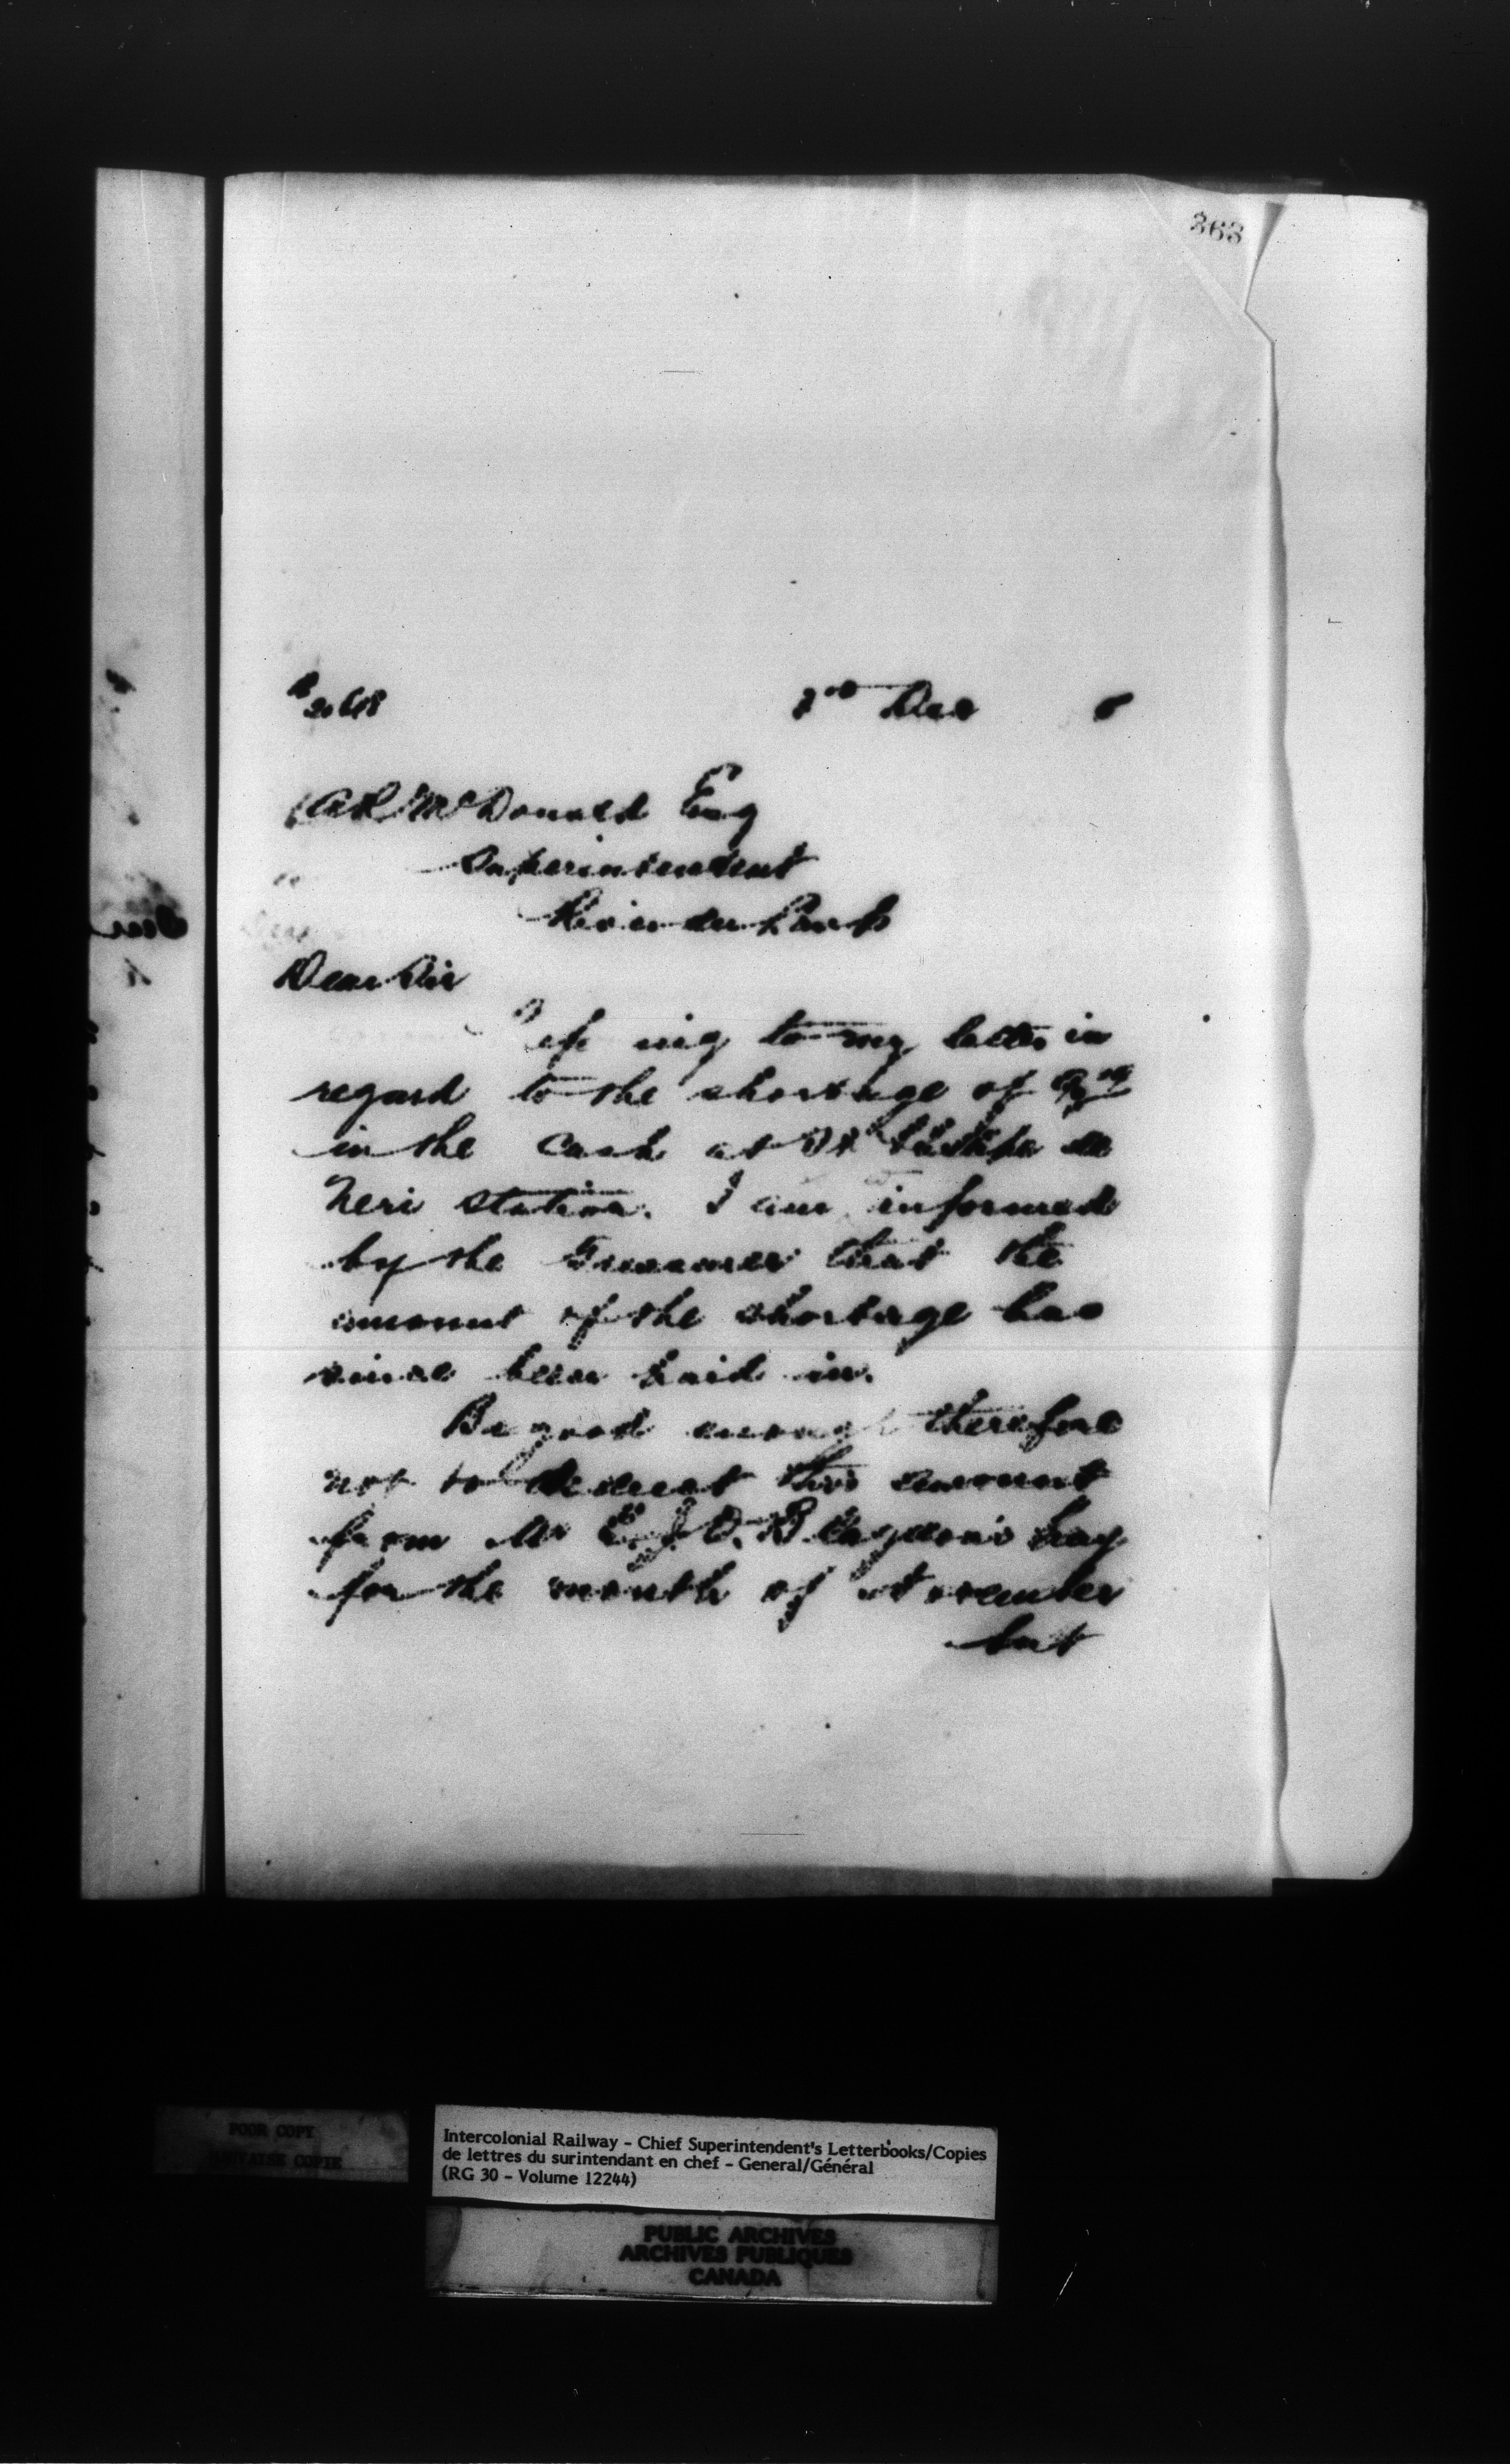 363
Dec
A R McDonald Esq
Superintendent
Riviere du Loup
Dear Sir
to my letter in
regard to the shortage of
in the Cash at St Philippe de
Neri station. I am informed
by the Treasurer that the
amount of the shortage has
since been paid in.
Be good enough therefore
not to deduct this amount
from Mr pay
for the month of November
but
POOR COPY
MAUVAISE COPIE
Intercolonial Railway - Chief Superintendent's Letterbooks/Copies
de lettres du surintendant en chef - General/Général
(RG 30 - Volume 12244)
PUBLIC ARCHIVES
ARCHIVES PUBLIQUES
CANADA